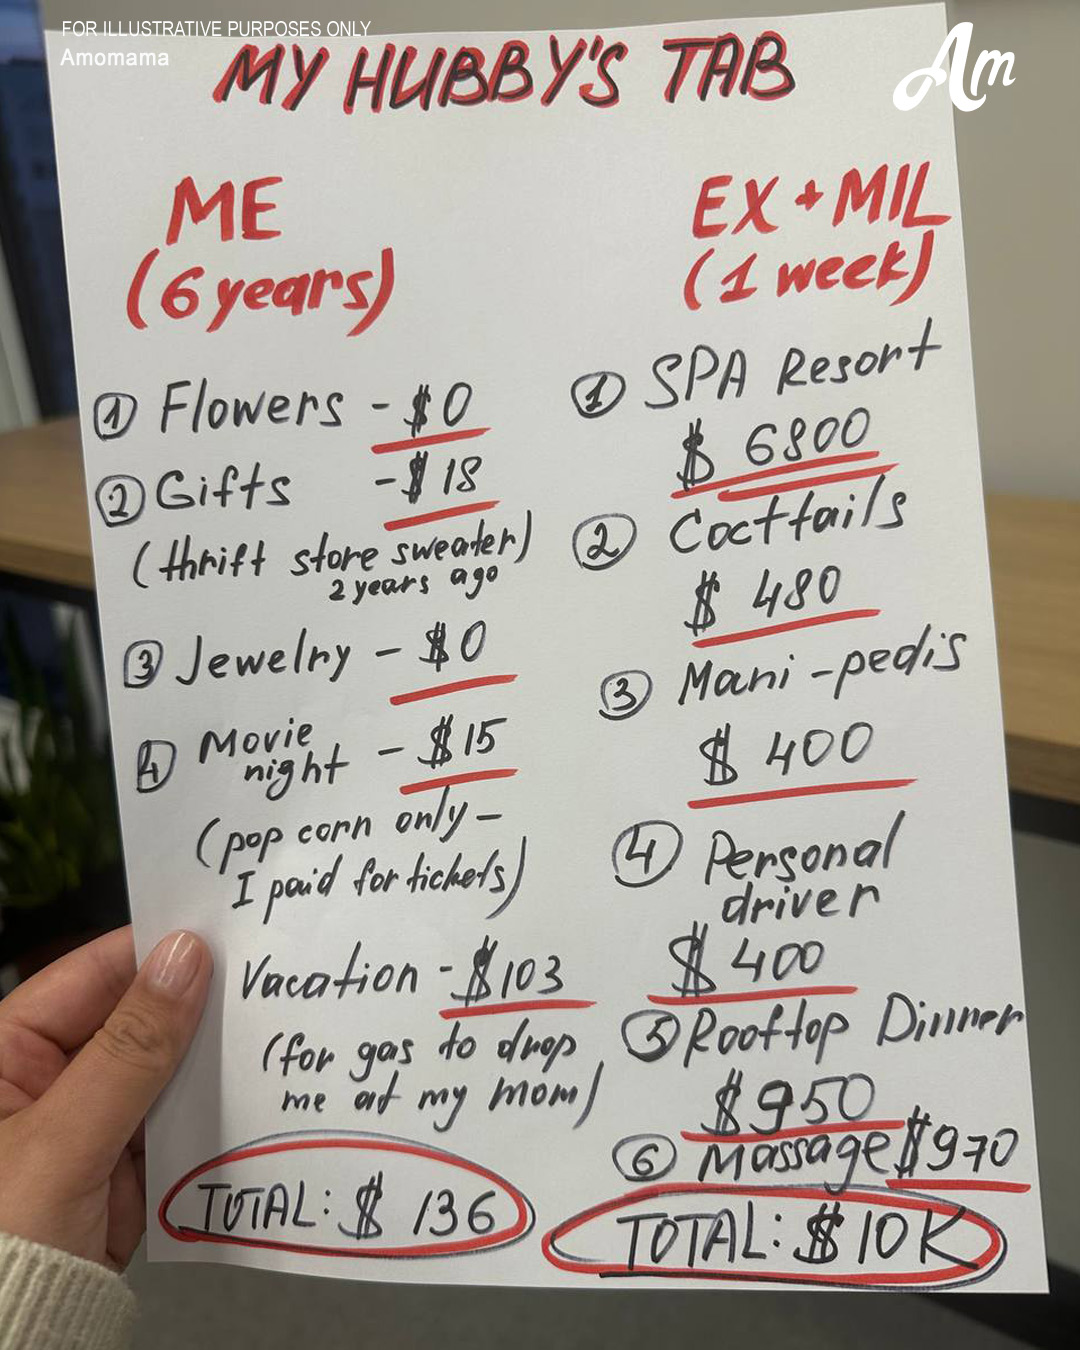 FOR ILLUSTRATIVE PURPOSES ONLY
Amomama
Am
MY HUBBY'S TAB
ME
(6 years)
① Flowers - $0
② Gifts - $18
(thrift store sweater)
2 years ago
③ Jewelry - $0
④ Movie
night - $15
(pop corn only -
I paid for tickets)
Vacation - $103
(for gas to drop
me at my mom)
TOTAL: $ 136
EX + MIL
(1 week)
① SPA Resort
$ 6800
② Cocttails
$ 480
③ Mani-pedis
$ 400
④ Personal
driver
$ 400
⑤ Rooftop Dinner
$950
⑥ Massage $970
TOTAL: $ 10K